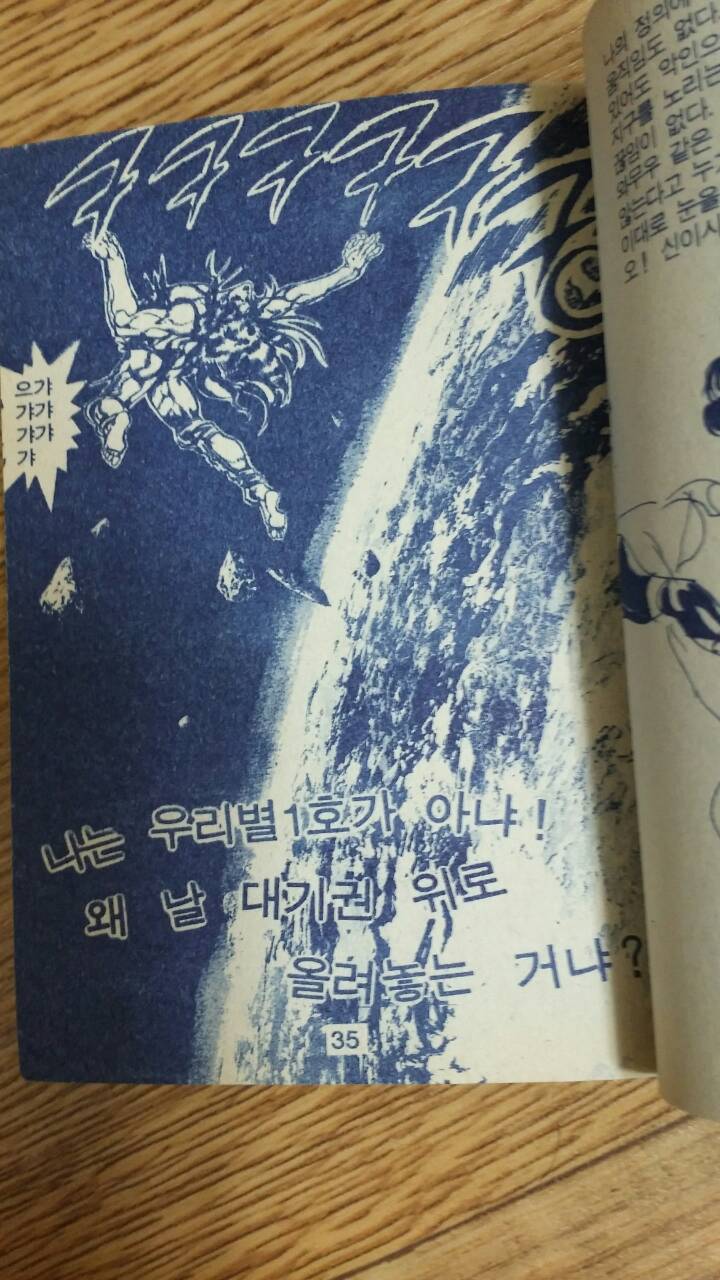 쿠쿠쿠쿠쿠
으갸
갸갸
갸갸
갸
나는 우리별1호가 아냐!
왜 날 대기권 위로
올려놓는 거냐?
35
나의 정의에
움직임도 없다
있어도 악인으
지구를 노리는
끊임이 없다.
와무우 같은
않는다고 누
이대로 눈을
오! 신이시